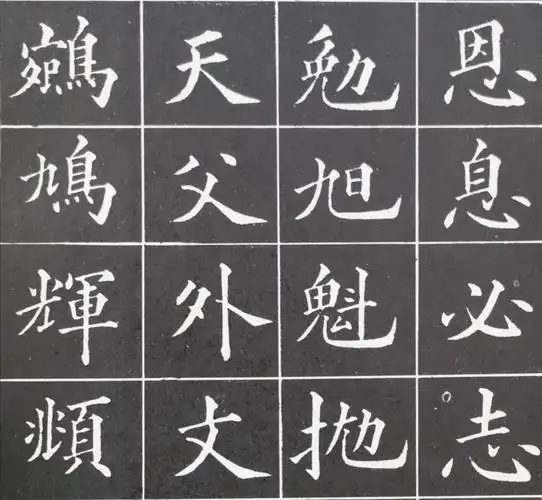 恩息必志
勉旭魁拋
天父外丈
鳩輝頫